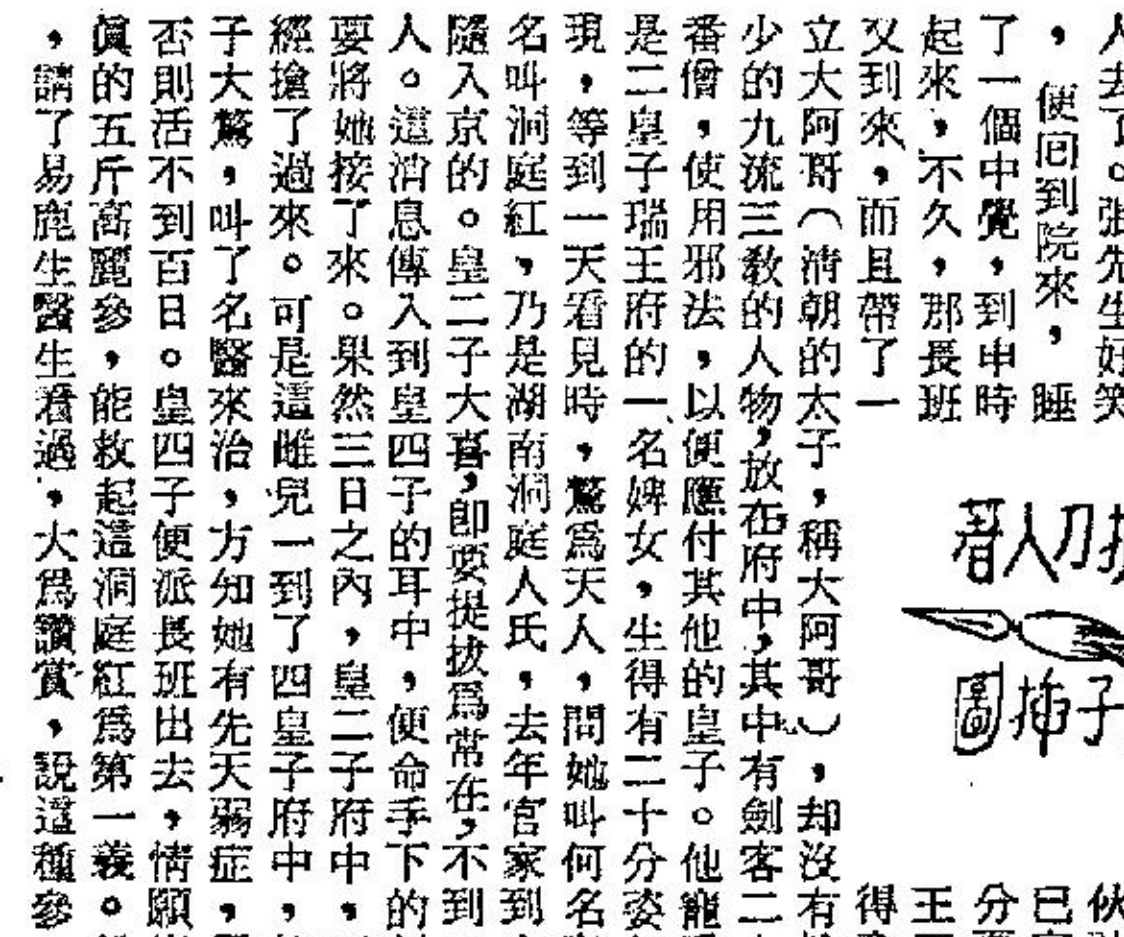 人去了。張先生好笑
，便回到院來，睡
了一個中覺，到申時
起來，不久，那長班
又到來，而且帶了一
立大阿哥（清朝的太子，稱大阿哥），却沒有
少的九流三教的人物，放在府中，其中有劍客二
番僧，使用邪法，以便應付其他的皇子。他寵
是二皇子瑞王府的一名婢女，生得有二十分姿
現，等到一天看見時，驚為天人，問她叫何名
名叫洞庭紅，乃是湖南洞庭人氏，去年官家到
隨入京的。皇二子大喜，即要提拔爲常在，不到
人。這消息傳入到皇四子的耳中，便命手下的
要將她接了來。果然三日之內，皇二子府中，
經搶了過來。可是這雌兒一到了四皇子府中，
子大驚，叫了名醫來治，方知她有先天弱症，
否則活不到百日。皇四子便派長班出去，情願
眞的五斤高麗參，能救起這洞庭紅爲第一義。
，請了易鹿生醫生看過，大爲讚賞，說這種參
刀人著
子插圖
伙
已
分
王
得